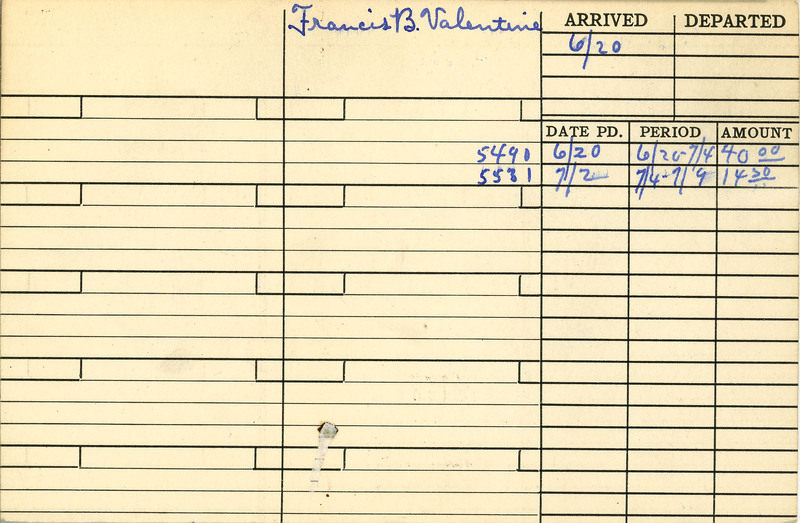 Francis B. Valentine
ARRIVED DEPARTED
6/20
DATE PD. PERIOD AMOUNT
5490 6/20 6/20-7/4 40 00
5531 7/2 7/4-7/9 14 30